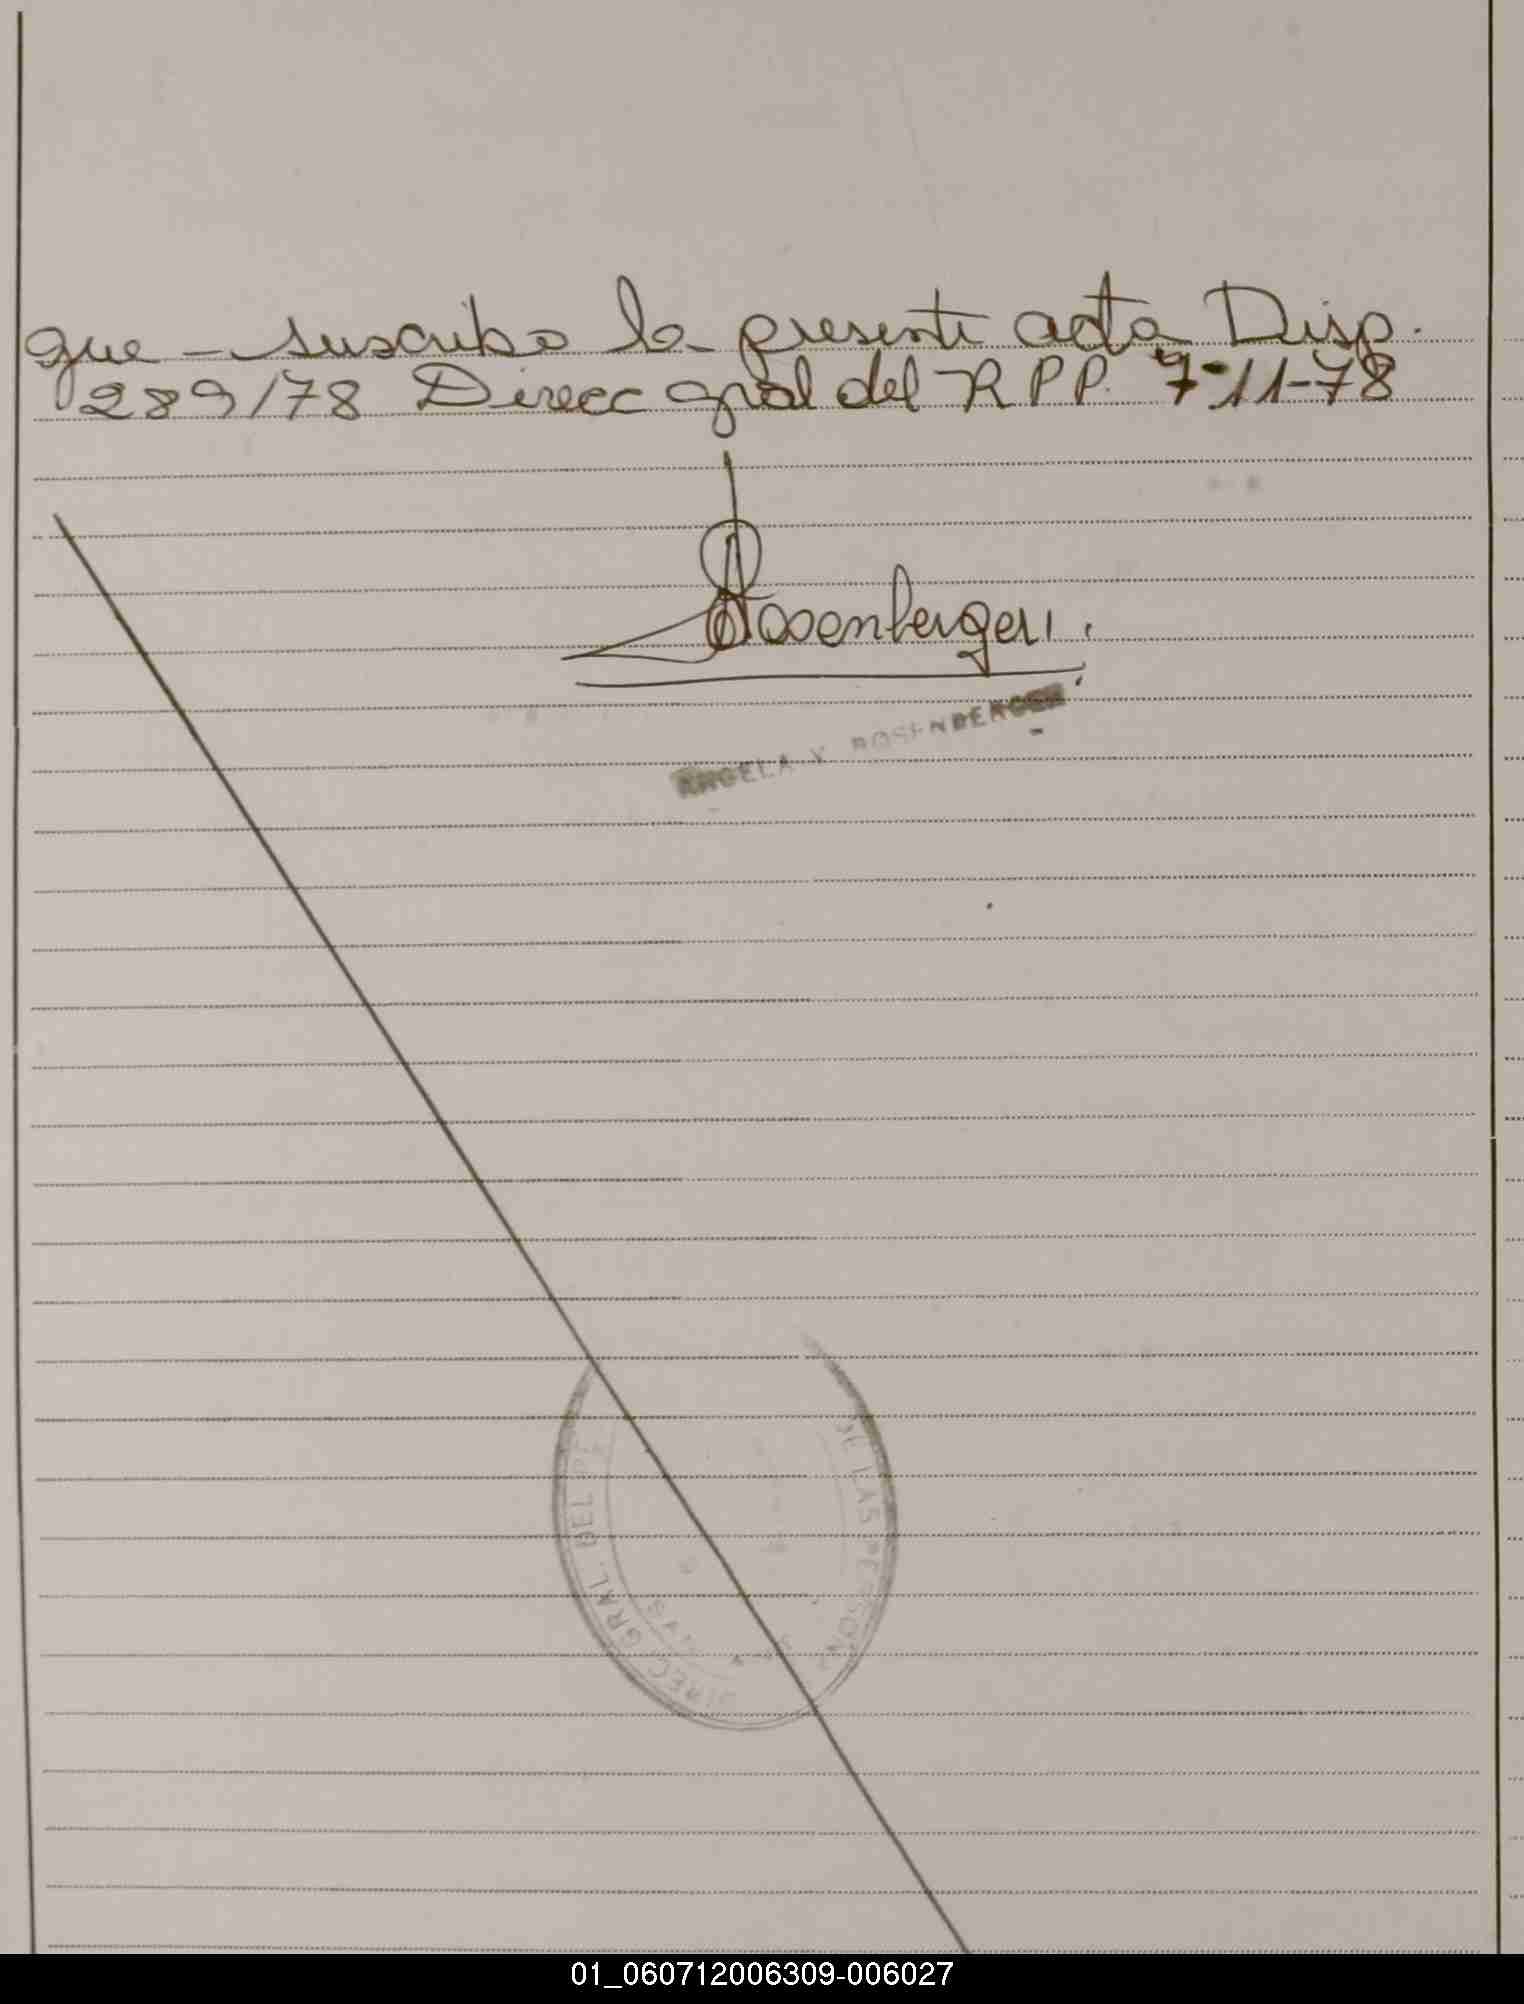 que - suscribo la presente acta Disp.
289/78 Direcc gral del R P P. 7-11-78
Rosenberger.
ANGELA Y ROSENBERGER
DIREC. GRAL. DEL
DE LAS PERSON
01_060712006309-006027